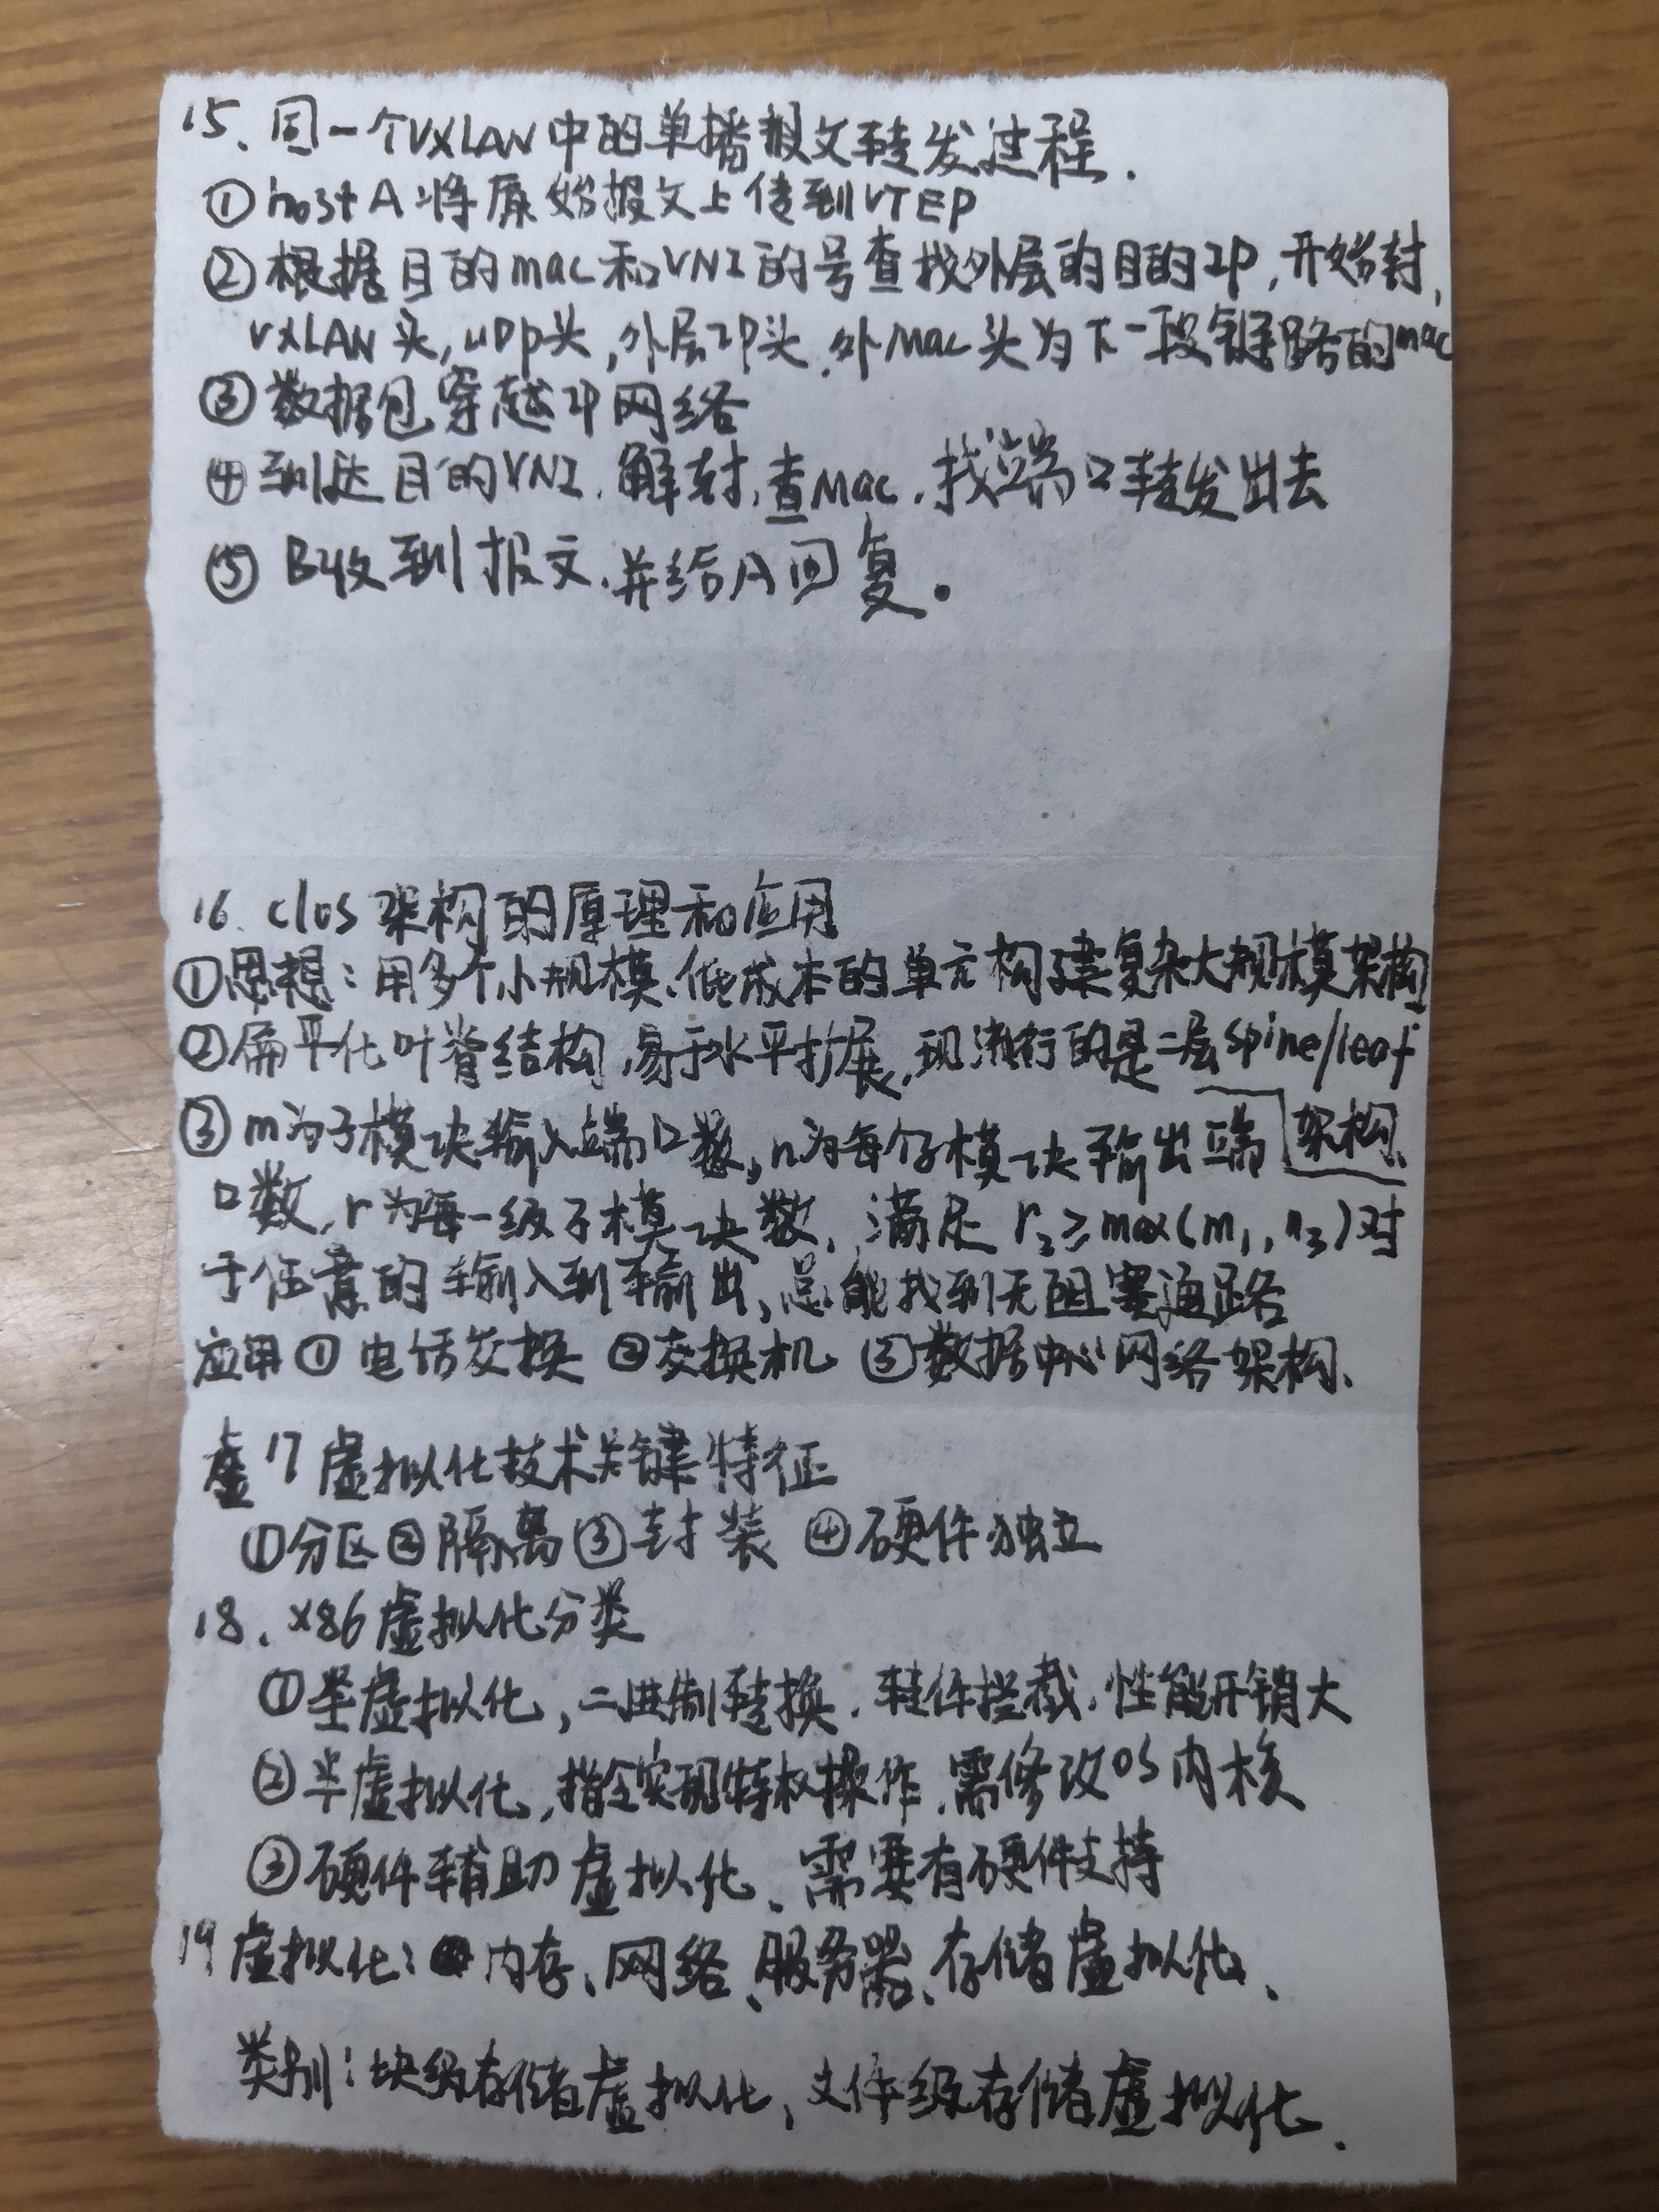 15、同一个VXLAN中的单播报文转发过程.
①hostA将原始报文上传到VTEP
②根据目的mac和VNI的号查找外层的目的IP,开始封,
VXLAN头,UDP头,外层IP头.外Mac头为下一段链路的mac
③数据包穿越IP网络
④到达目的VNI.解封,查Mac.找端口转发出去
⑤B收到报文.并给A回复。
16.clos架构的原理和应用
①思想:用多个小规模、低成本的单元构建复杂大规模架构
②扁平化叶脊结构,易于水平扩展,现流行的是二层spine/leaf
架构、
③m为子模块输入端口数,n为每个子模块输出端
口数,r为每一级子模块数,满足r₂≥max(m₁,n₃)对
于任意的输入到输出,总能找到无阻塞通路
应用①电话交换②交换机③数据中心网络架构、
虚17虚拟化技术关键特征
①分区②隔离③封装④硬件独立
18.x86虚拟化分类
①全虚拟化,二进制转换.软件拦截.性能开销大
②半虚拟化,指令实现特权操作.需修改OS内核
③硬件辅助虚拟化、需要有硬件支持
19虚拟化:内存、网络、服务器、存储虚拟化、
类别:块级存储虚拟化,文件级存储虚拟化.